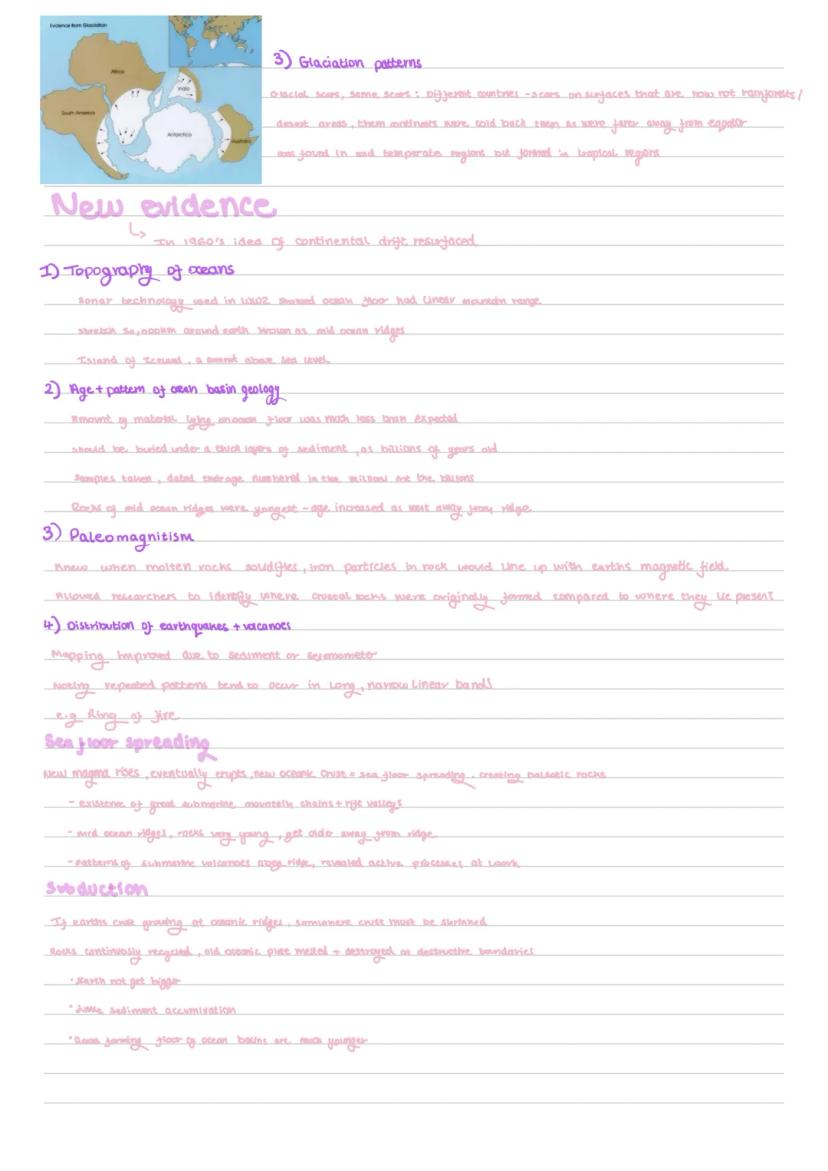 Evidence from Glaciation
Africa
India
South America
Antarctica
Australia
3) Glaciation patterns
Glacial scars, same scars : different countries - scars on surfaces that are now not rainforests /
desert areas, them continents were cold back then as were furer away from equator
coal found in mid temperate regions but formed in tropical regions
New evidence
↳ In 1960's idea of continental drift resurfaced
1) Topography of oceans
Sonar technology used in WW2 showed ocean floor had linear mountain range
stretch 50,000km around earth known as mid ocean ridges
Island of Iceland, a summit above sea level
2) Age + pattern of ocean basin geology
Amount of material lying on ocean floor was much less than expected
should be buried under a thick layers of sediment, as billions of years old
Samples taken, dated their age numbered in the millions not the billions
Rocks of mid ocean ridges were youngest - age increased as went away from ridge
3) Paleomagnitism
Knew when molten rocks solidifies, iron particles in rock would line up with earths magnetic field.
Allowed researchers to identify where crustal rocks were originally formed compared to where they lie present
4) Distribution of earthquakes + volcanoes
Mapping improved due to sediment or seismometer
Noting repeated patterns tend to occur in long, narrow linear bands
e.g Ring of fire
Sea floor spreading
New magma rises, eventually erupts, new oceanic crust = sea floor spreading. creating basaltic rocks
- existence of great submarine mountain chains + rift valleys
- mid ocean ridges, rocks very young, get older away from ridge
- Patterns of submarine volcanoes along ridge, revealed active processes at work
Subduction
If earths crust growing at oceanic ridges, somewhere crust must be shrinked
Rocks continuosly recycled, old oceanic plate melted + destroyed at destructive boundaries
• Earth not get bigger
• Little sediment accumlation
• Rocks forming floor of ocean basins are much younger